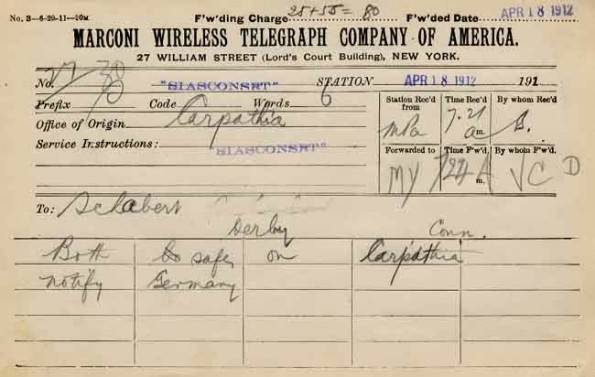 No. 3—6-29-11—10M. F'w'ding Charge 25+55=80 F'w'ded Date APR 18 1912
MARCONI WIRELESS TELEGRAPH COMPANY OF AMERICA.
27 WILLIAM STREET (Lord's Court Building), NEW YORK.
No. "SIASCONSET" STATION APR 18 1912 191
Prefix Code Words 6
Office of Origin Carpathia
Service Instructions: "SIASCONSET"
Station Rec'd Time Rec'd By whom Rec'd
MPa 7.21 am.
Forwarded to Time F'w'd. By whom F'w'd.
MY m. VC D
To: Schabert
Derby Conn.
Both safe on Carpathia
notify Germany